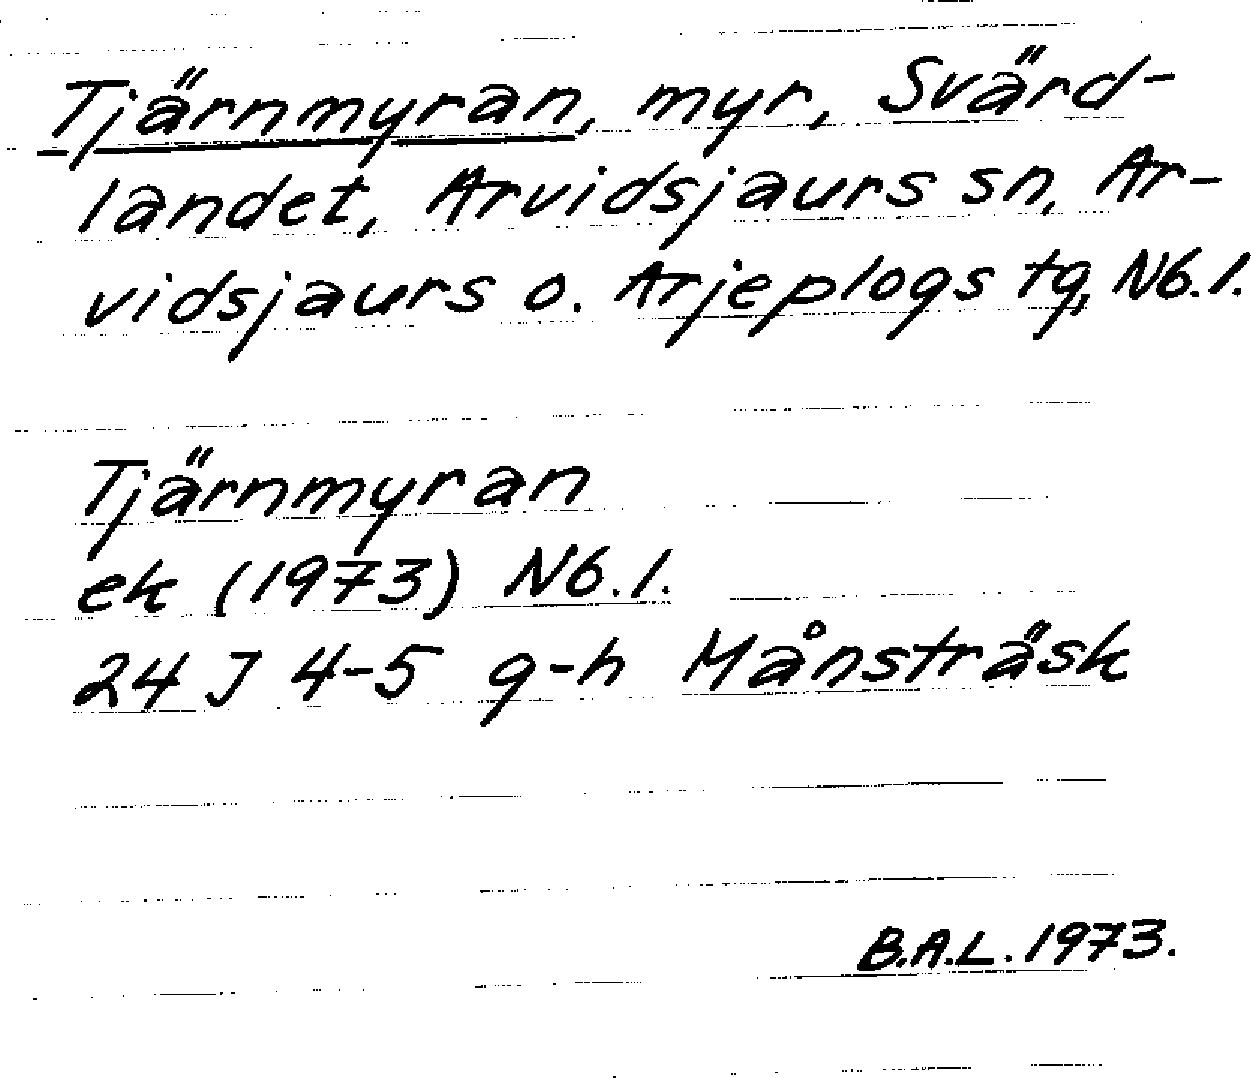 Tjärnmyran, myr, Svärd-
landet, Arvidsjaurs sn, Ar-
vidsjaurs o. Arjeplogs tg, Nb.l.
Tjärnmyran
ek (1973) Nb.l.
24 J 4-5 g-h Månsträsk
B.A.L. 1973.